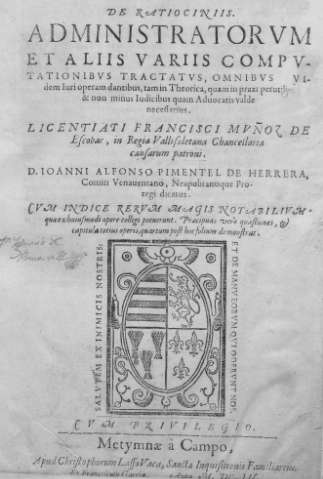 DE RATIOCINIIS.
ADMINISTRATORVM
ET ALIIS VARIIS COMPV-
TATIONIBVS TRACTATVS, OMNIBVS
dem Iuri operam dantibus, tam in Theorica, quam in praxi perutilis
& non minus Iudicibus quam Aduocatis valde
necessarius.
LICENTIATI FRANCISCI MVÑOZ DE
Escobar, in Regia Vallisoletana Chancellaria
causarum patroni.
D. IOANNI ALFONSO PIMENTEL DE HERRERA,
Comiti Venauentano, Neapolitanoque Pro-
regi dicatus.
CVM INDICE RERVM MAGIS NOTABILIVM
quæ ex huiusmodi opere colligi potuerunt. Præcipuæ verò quæstiones, &
capitula totius operis, quartum post hoc folium demonstrat.
SALVTEM EX INIMICIS NOSTRIS:
ET DE MANV OMNIVM QVI ODERVNT NOS.
CVM PRIVILEGIO.
Metymnæ à Campo,
Apud Christophorum Lasso Vaca, Sanctæ Inquisitionis Familiarem,